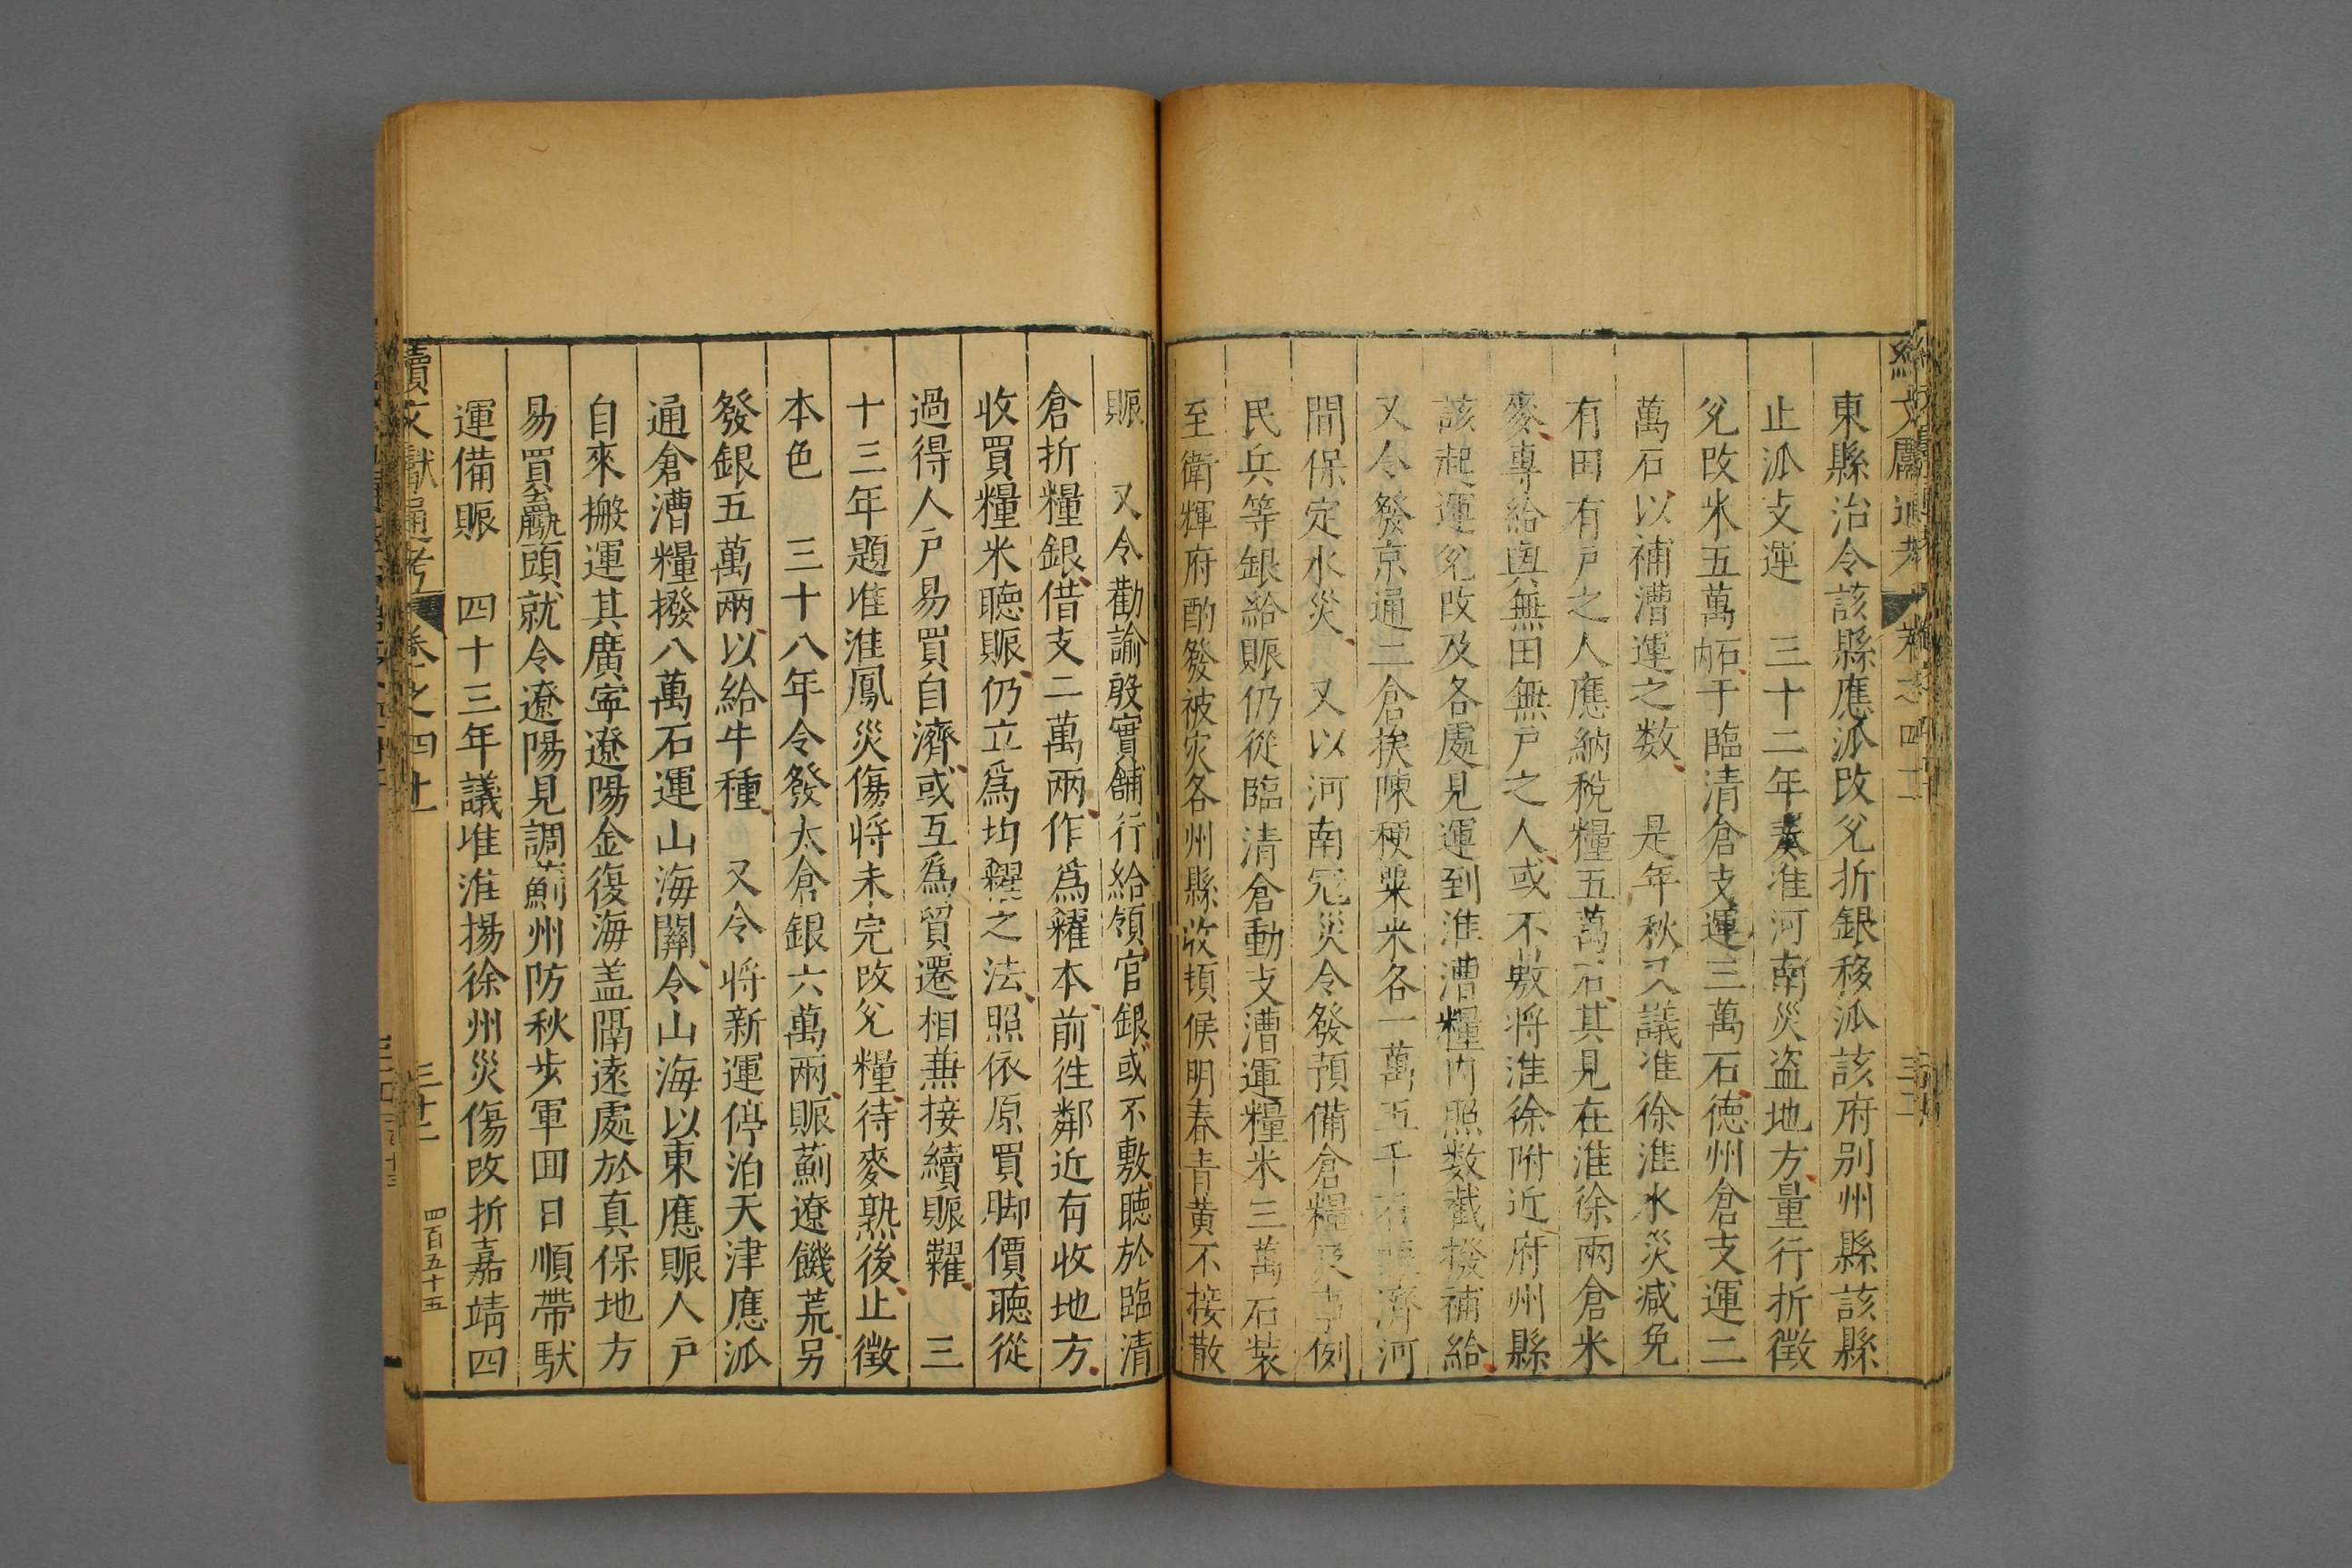 東縣治令該縣應派改兊折銀移派該府别州縣該縣
止派支運 三十二年奏准河南災盗地方量行折徵
兊改米五萬石内于臨清倉支運三萬石德州倉支運二
萬石以補漕運之数 是年秋又議准徐淮水災減免
有田有戶之人應納稅糧五萬石其見在淮徐兩倉米
麥專給與無田無戶之人或不敷將淮徐附近府州縣
該起運兊改及各處見運到淮漕糧内照数截撥補給
又令發京通二倉挨陳粳粟米各一萬五千石濟河
間保定水災 又以河南災令發預備倉糧及事例
民兵等銀給賑仍從臨清倉動支漕運糧米三萬石装
至衛輝府酌發被灾各州縣收頓侯明春青黄不接散
賑 又令勸諭殷實舖行給領官銀或不敷聽於臨清
倉折糧銀借支二萬兩作爲糴本前徃鄰近有收地方
收買糧米聽賑仍立爲均糶之法照依原買脚價聽從
過得人戶易買自濟或互爲貿遷相兼接續賑糶 三
十三年題准淮鳳災傷將未完改兊糧待麥熟後止徵
本色 三十八年令發太倉銀六萬兩賑薊遼饑荒另
發銀五萬兩以給牛種 又令將新運停泊天津應派
通倉漕糧撥八萬石運山海關令山海以東應賑人戶
自來搬運其廣寕遼陽金復海盖隔遠處於真保地方
易買羸頭就令遼陽見調薊州防秋步軍囬日順帶馱
運備賑 四十三年議准淮揚徐州災傷改折嘉靖四
續文獻通考 卷之四十一 三十二 四百五十五